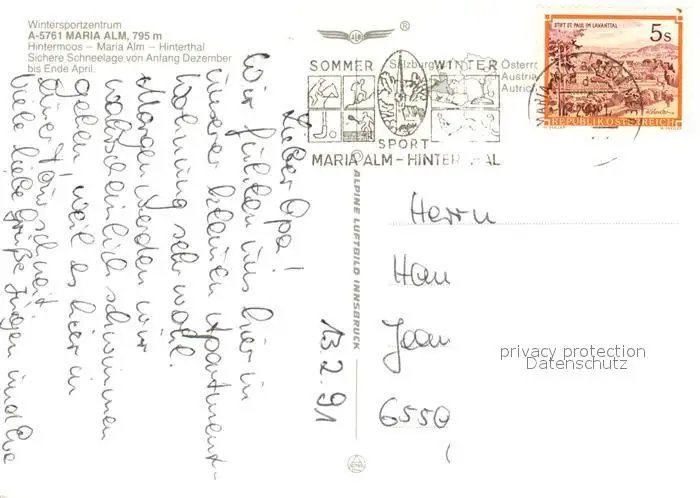 Wintersportzentrum
A-5761 MARIA ALM, 795 m
Hintermoos – Maria Alm – Hinterthal
Sichere Schneelage von Anfang Dezember
bis Ende April.
ALM
®
SOMMER WINTER
SPORT
MARIA ALM - HINTER AL
Salzburg Österre
Austria
Autric
STIFT ST. PAUL IM LAVANTTAL
5s
REPUBLIK ÖSTERREICH
MARIA
ALPINE LUFTBILD INNSBRUCK
Lieber Opa!
Wir fühlen uns hier in
unserer kleinen Apartment-
Wohnung sehr wohl.
Morgen werden wir
wahrscheinlich schwimmen
gehen, weil es hier in
einer schneit
Viele liebe Grüße Jürgen und Eva
13.2.91
Herrn
Han
Jean
6550
privacy protection
Datenschutz